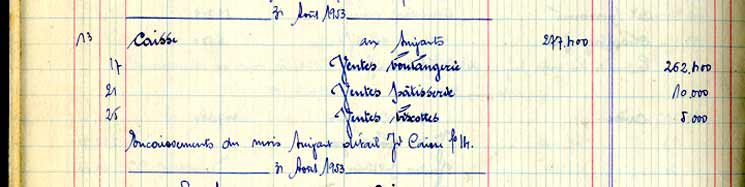 31 Août 1953
13 Caisse aux suivants 277.400
17 Ventes boulangerie 262.400
21 Ventes pâtisserie 10.000
25 Ventes biscottes 5.000
Encaissements du mois suivant détail Jal Caisse f° 14.
31 Août 1953